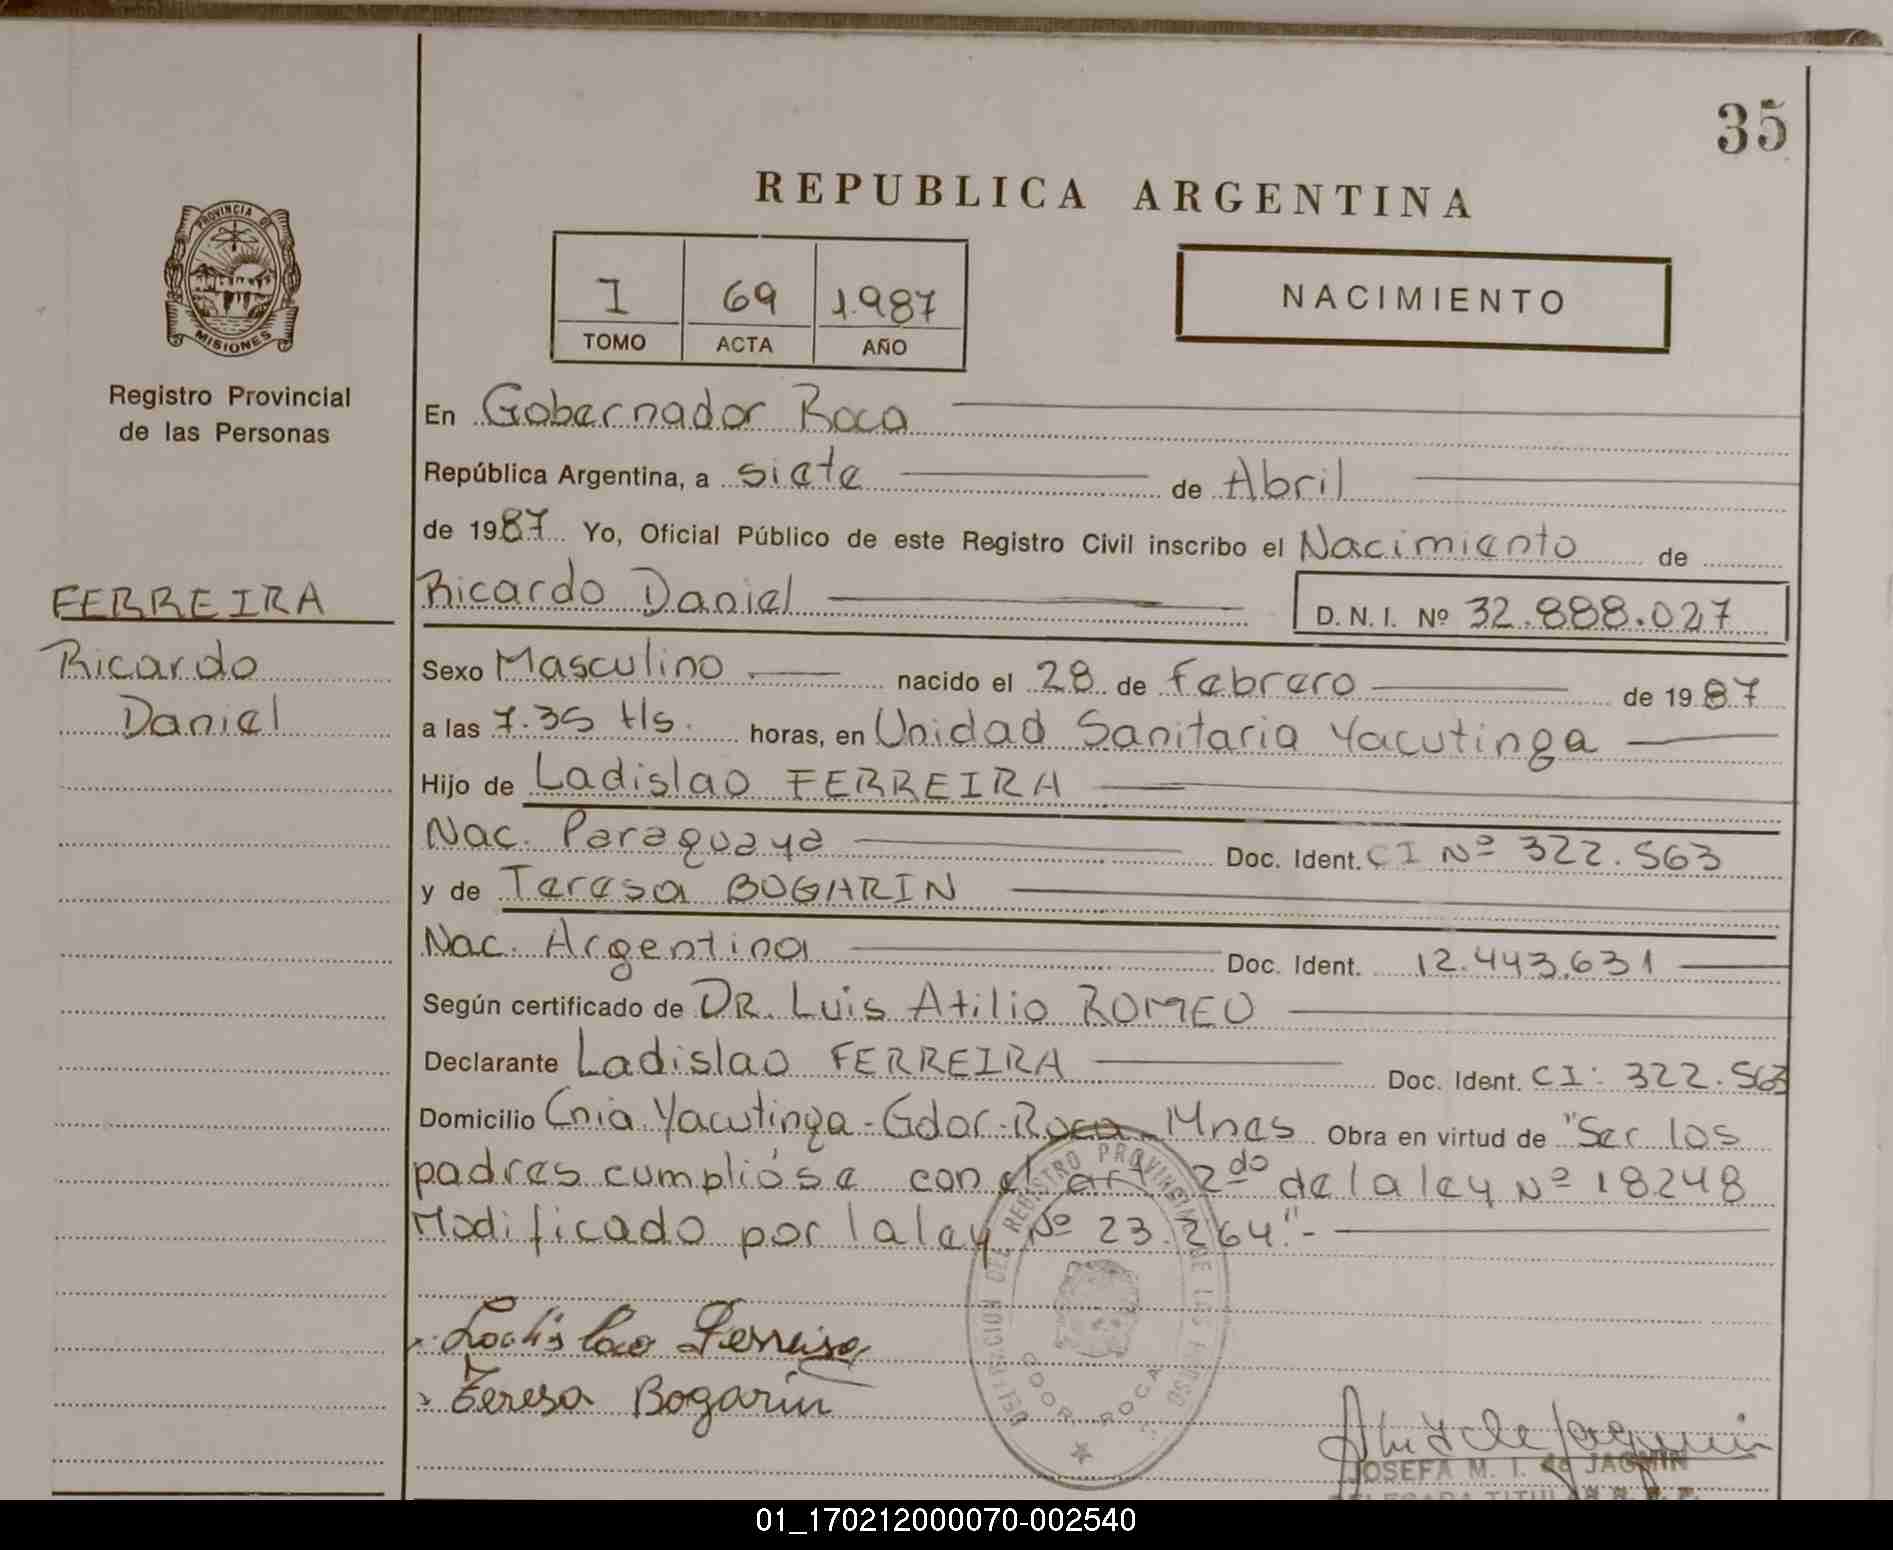 35
REPUBLICA ARGENTINA
PROVINCIA DE
MISIONES
I 69 1.987
TOMO ACTA AÑO
NACIMIENTO
Registro Provincial
de las Personas
En Gobernador Roca
República Argentina, a siete de Abril
de 1987 Yo, Oficial Público de este Registro Civil inscribo el Nacimiento de
FERREIRA
Ricardo Daniel D. N. I. Nº 32.888.027
Ricardo
Daniel
Sexo Masculino nacido el 28 de Febrero de 1987
a las 7.35 Hs. horas, en Unidad Sanitaria Yacutinga
Hijo de Ladislao FERREIRA
Nac. Paraguaya Doc. Ident. CI Nº 322.563
y de Teresa BOGARIN
Nac. Argentina Doc. Ident. 12.443.631
Según certificado de DR. Luis Atilio ROMEO
Declarante Ladislao FERREIRA Doc. Ident. CI: 322.563
Domicilio Cnia. Yacutinga-Gdor-Roca-Mnes Obra en virtud de "Ser los
padres cumplióse con el art 2do de la ley Nº 18248
Modificado por la ley Nº 23.264".-
DELEGACION DEL REGISTRO PROVINCIAL DE LAS PERSO
GDOR ROCA
Ladislao Ferreira
Teresa Bogarin
JOSEFA M. I. de JAGMIN
DELEGADA TITULAR
01_170212000070-002540